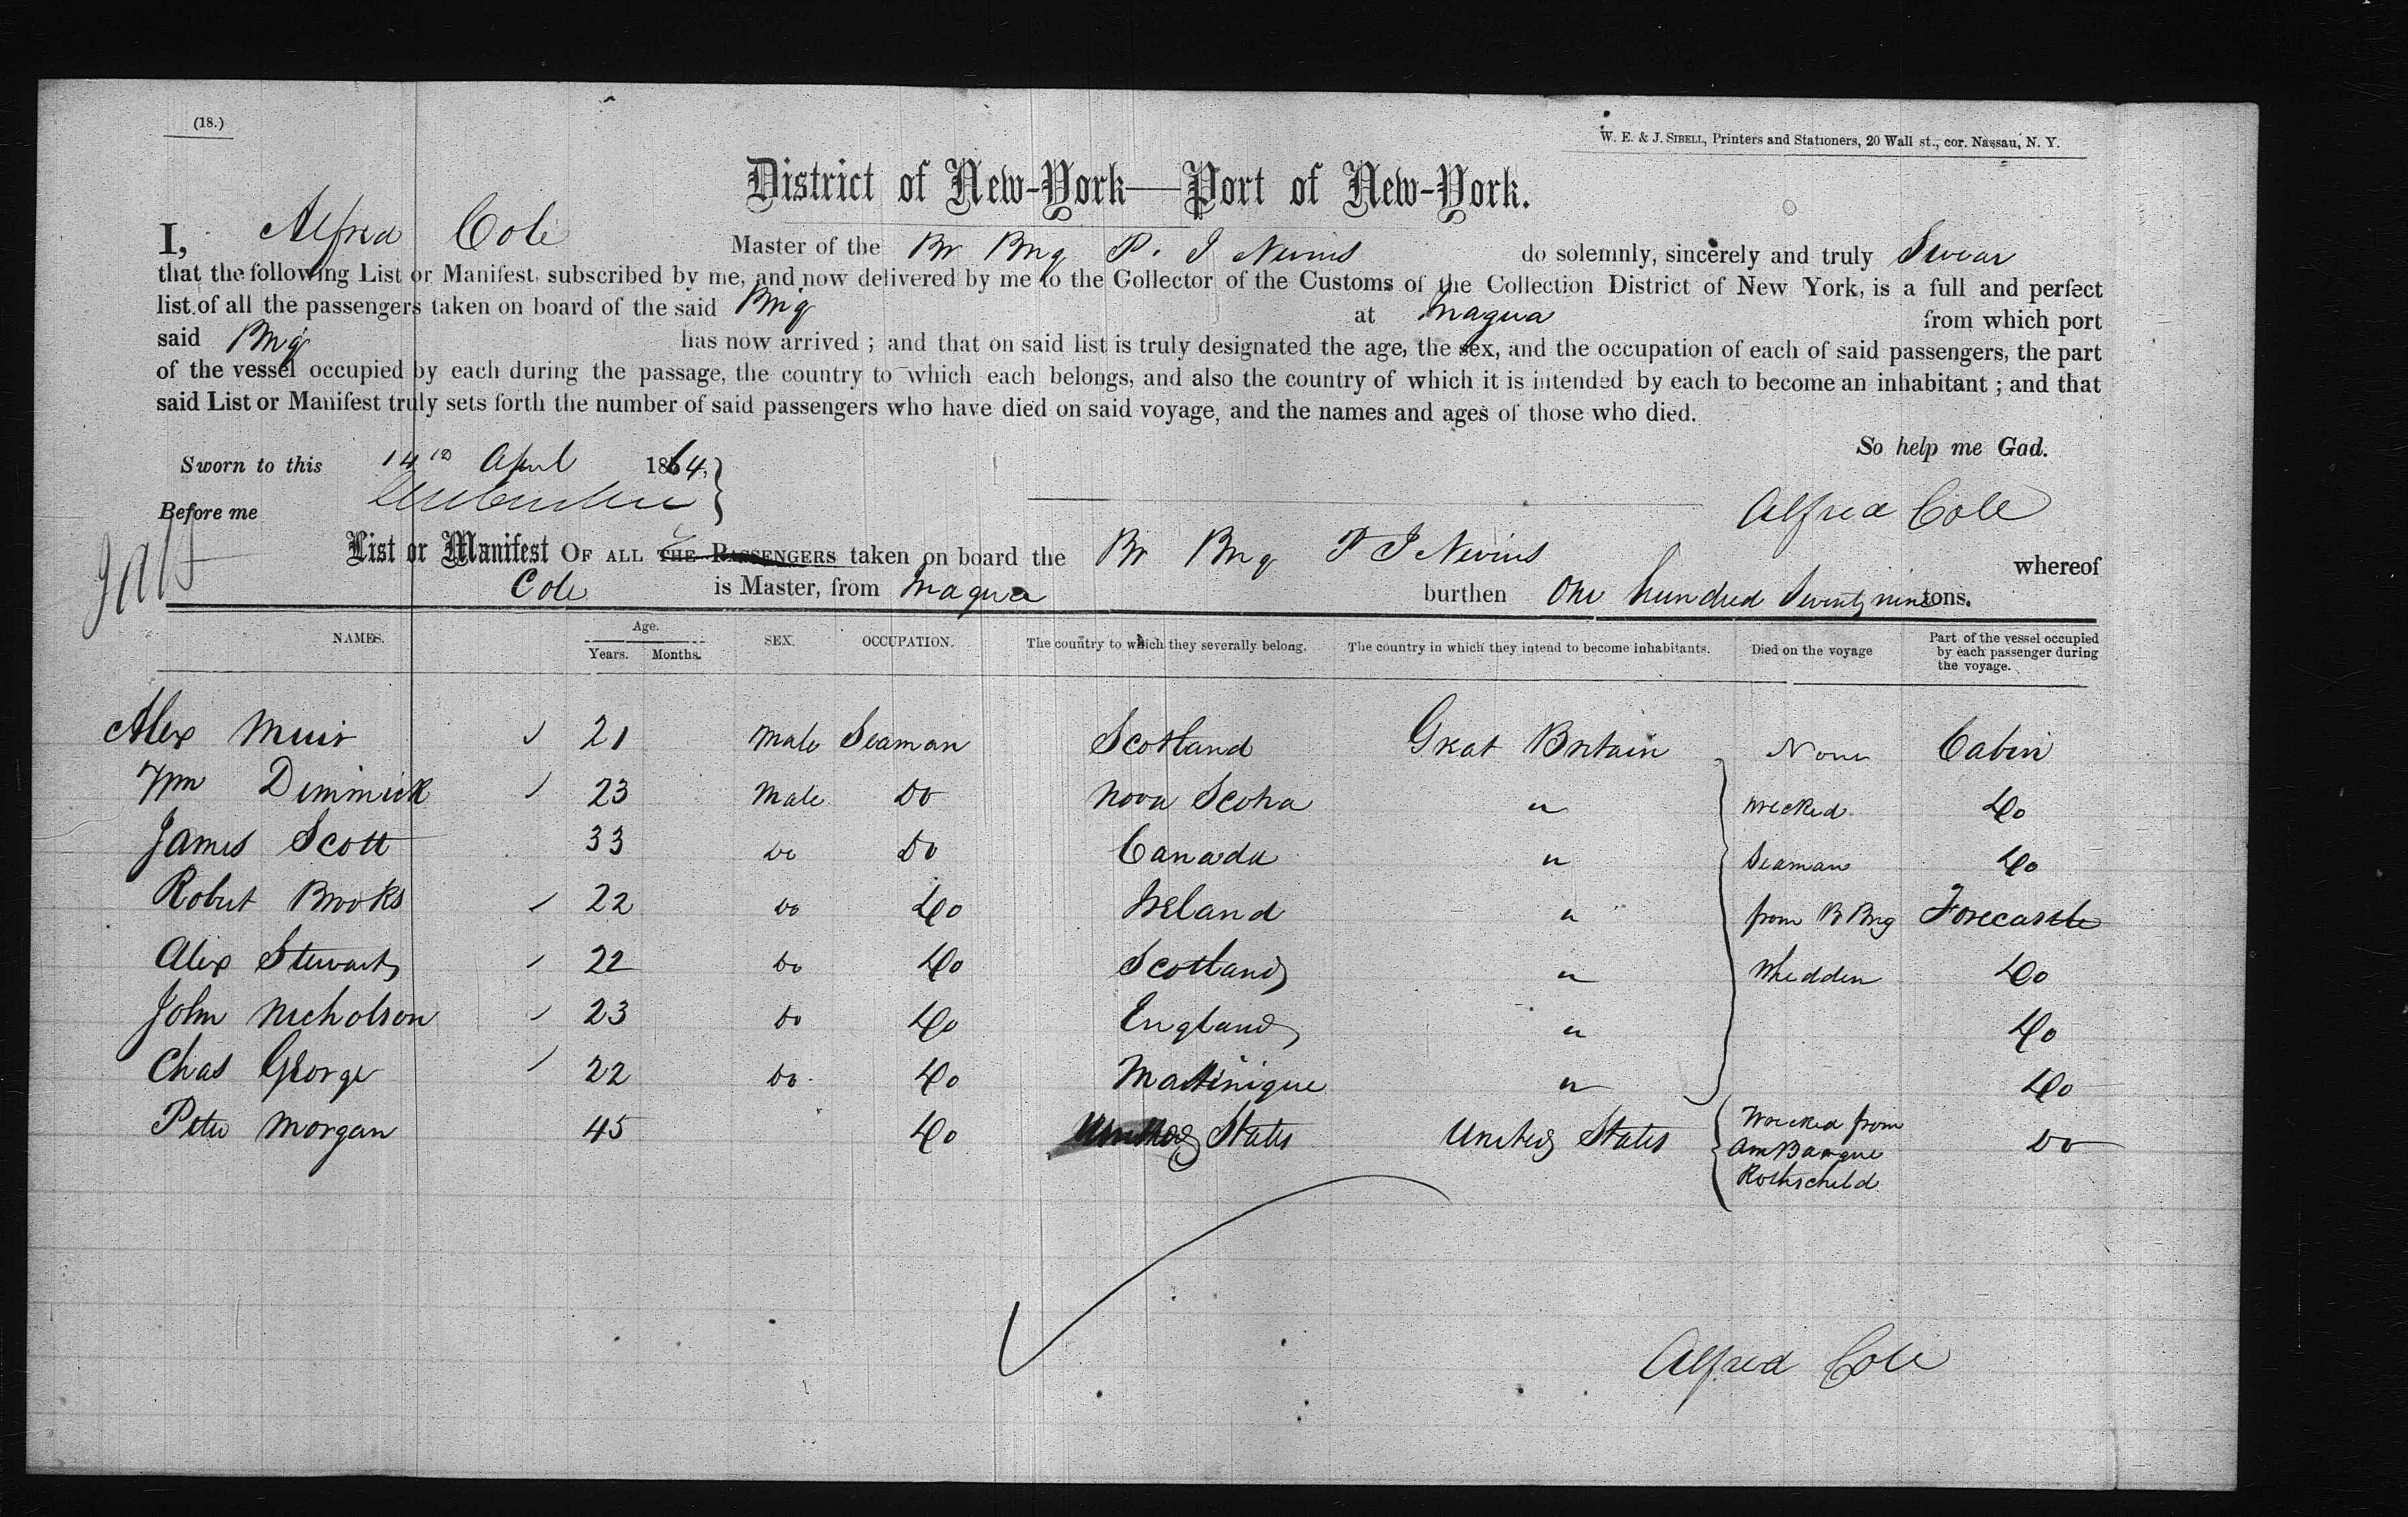 (18.)
W. E. & J. SIBELL, Printers and Stationers, 20 Wall st., cor. Nassau, N. Y.
District of New-York—Port of New-York.
I, Alfred Cole Master of the Br Brig P. I Nevins do solemnly, sincerely and truly Swear
that the following List or Manifest, subscribed by me, and now delivered by me to the Collector of the Customs of the Collection District of New York, is a full and perfect
list of all the passengers taken on board of the said Brig at Inagua from which port
said Brig has now arrived ; and that on said list is truly designated the age, the sex, and the occupation of each of said passengers, the part
of the vessel occupied by each during the passage, the country to which each belongs, and also the country of which it is intended by each to become an inhabitant ; and that
said List or Manifest truly sets forth the number of said passengers who have died on said voyage, and the names and ages of those who died.
So help me Gad.
Sworn to this 14th April 1864,
Before me
Alfred Cole
List or Manifest OF ALL THE PASSENGERS taken on board the Br Brig P I Nevins whereof
Cole is Master, from Inagua burthen One hundred Seventy nine tons.
NAMES. Age. Years. Months. SEX. OCCUPATION. The country to which they severally belong. The country in which they intend to become inhabitants. Died on the voyage Part of the vessel occupied by each passenger during the voyage.
Alex Muir 21 Male Seaman Scotland Great Britain None Cabin
Wm Dimmick 23 Male Do Nova Scotia " wrecked Do
James Scott 33 Do Do Canada " Seaman Do
Robert Brooks 22 Do Do Ireland " from B Brig Forecastle
Alex Stewart 22 Do Do Scotland " Whedden Do
John Nicholson 23 Do Do England " Do
Chas George 22 Do Do Martinique " Do
Peter Morgan 45 Do United States United States Wrecked from Do
Am Barque
Rothschild
Alfred Cole